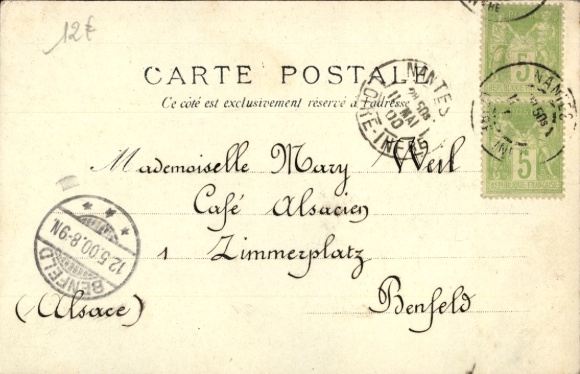 12€
CARTE POSTALE
Ce côté est exclusivement réservé à l'adresse
NANTES
11 MAI
00
LOIRE-INFRE
5
REPUBLIQUE FRANÇAISE
5
NANTES
Mademoiselle Mary Weil
Café Alsacien
1 Zimmerplatz
Benfeld
(Alsace)
BENFELD
12.5.00.8-9N.